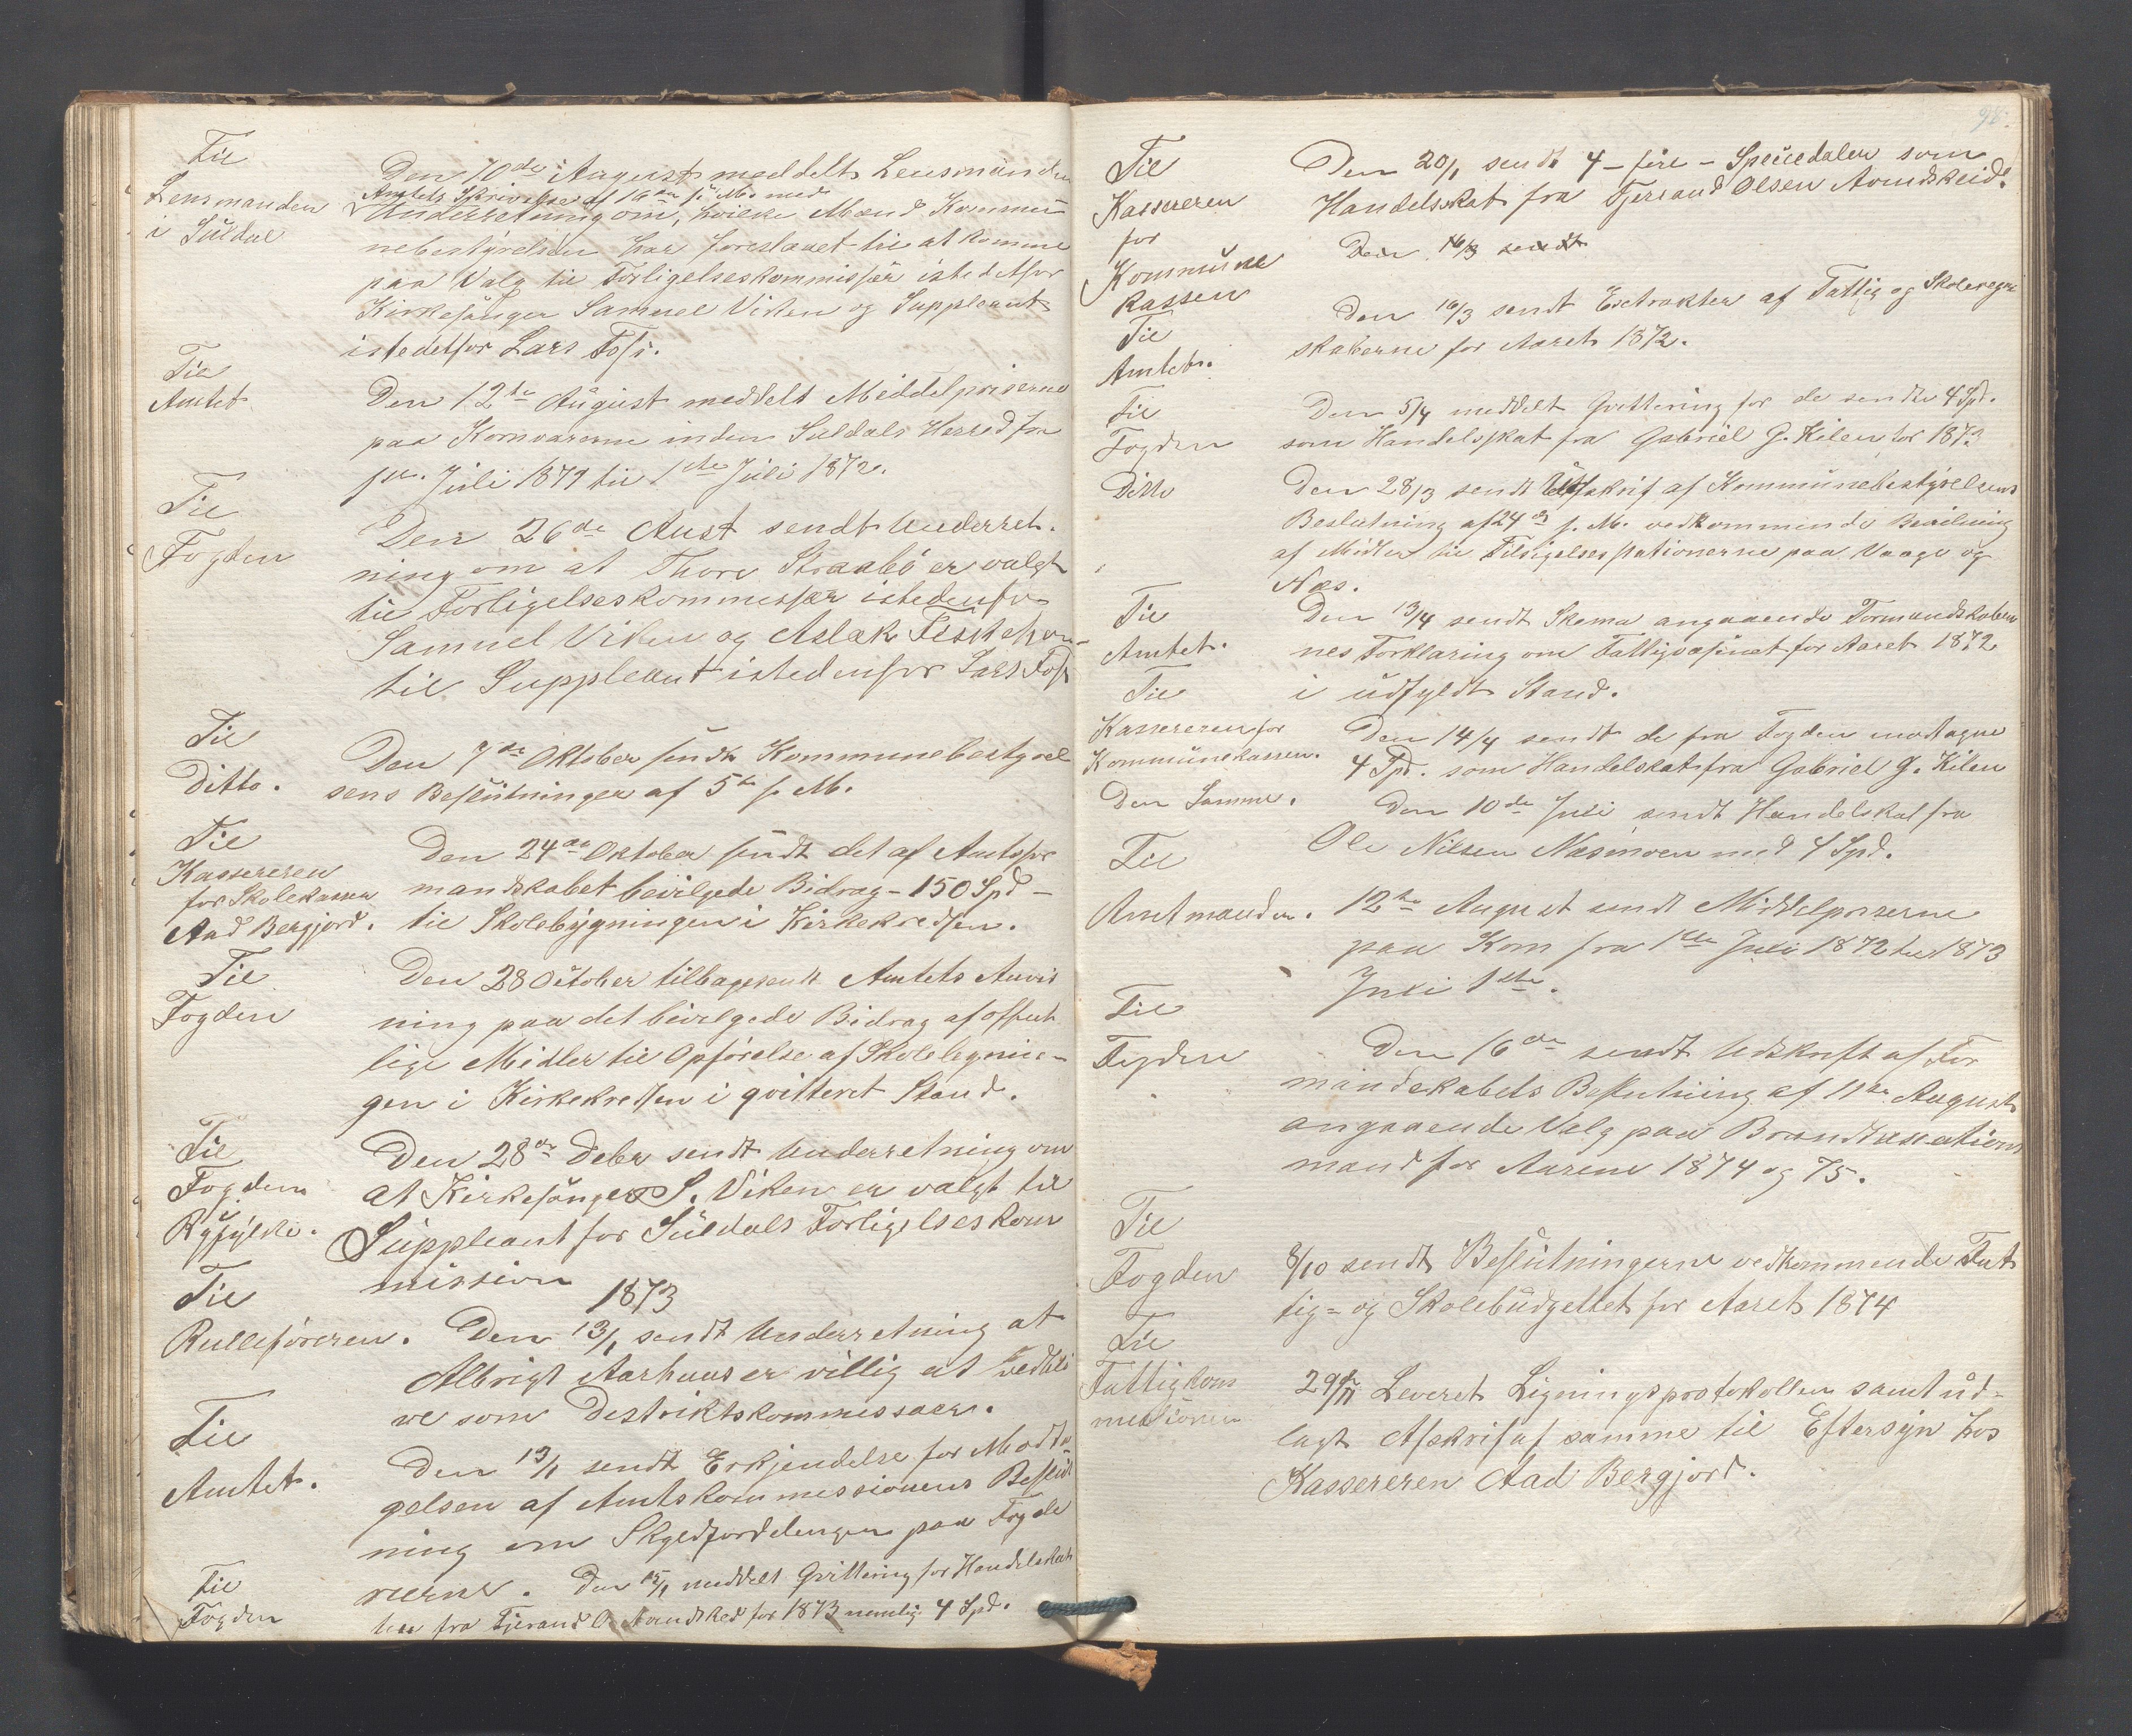 Til
Lensmanden
i Süldal
Den 10de August meddelt Lensmanden
Amtets Skrivelse af 16de f. M. med
Underretning om, hvilke Mænd Kommu
nebestyrelsen har foreslaaet til at komme
paa Valg til Forligelseskommissær istedetfor
Kirkesanger Samuel Viken og Suppleant
istedetfor Lars Foss.
Til
Amtet
Den 12te August meddelt Middelpriserne
paa Kornvarerne inden Suldals Herred fra
Juli 1871 til 1ste Juli 1872.
Til
Fogden
Den 26de Aust sendt Underret-
ning om at Thore Straabø er valgt
til Forligelseskommissær istedenfor
Samuel Viken og Aslak
til Suppleant istedenfor Lars Foss
Til
Ditto.
Den 7de Oktober sendt Kommunebestyrel
sens Beslutninger af 5te s. M.
Til
Kassereren
for Skolekassen
Aad Bergjord.
Den 24de Oktober sendt det af Amtsfor
mandskabet bevilgede Bidrag - 150 Spd -
til Skolebygningen i Kirkekredsen.
Til
Fogden
Den 28 October tilbagesendt Amtets Anvis
ning paa det bevilgede Bidrag af offent
lige Midler til Opførelse af Skolebygnin-
gen i Kirkekredsen i qvitteret Stand.
Til
Fogden
Ryfylke.
Den 28de Debr sendt Underretning om
at Kirkesanger S. Viken er valgt til
Suppleant for Süldals Forligelseskom
mission
1873
Til
Rulleføreren.
Den 13/1 sendt Underretning at
Albrigt Aarhuus er villig at vedbli
ve som Destriktskommissær.
Til
Amtet.
Den 13/1 sendt Erkjendelse for Modta-
gelsen af Amtskommissionens Beslut
ning om Skyldfordelingen paa Fogde
rierne.
Til
Fogden
Den 15/1 meddelt Qvittering for Handelsskat
ten fra Tjerand O. Aandsked for 1873 nemlig 4 Spd.
98.
Til
Kassereren
for
Kommune
kassen
Den 20/1 sendt 4 - fire - Speciedaler som
Handelsskat fra Tjerand Olsen
Den 16/3 sendt
Til
Amtet.
Den 16/3 sendt Extrakter af Fattig og Skoleregn
skaberne for Aaret 1872.
Til
Fogden
Den 5/4 meddelt Qvittering for de sendte 4 Spd.
som Handelsskat fra Gabriel G. Kilen for 1873
Ditto
Den 28/3 sendt Udskrift af Kommunebestyrelsens
Beslutning af 24de s. M. vedkommende Bevilning
af Midler til Tilsigelsesstationerne paa Vaage og
Næs.
Til
Amtet.
Den 13/4 sendt Skema angaaende Formandskaber
nes Forklaring om Fattigvæsenet for Aaret 1872
i udfyldt Stand.
Til
Kassereren for
Kommunekassen.
Den 14/4 sendt de fra Fogden modtagne
4 Spd. som Handelskat fra Gabriel G. Kilen
Den Samme.
Den 10de Juli sendt Handelskat fra
Ole Nilsen Næsmoen med 4 Spd.
Til
Amtmanden.
12te August sendt Middelpriserne
paa Korn fra 1ste Juli 1872 til 1873
Juli 1ste.
Til
Fogden
Den 16de sendt Udskrift af For
mandskabets Beslutning af 11te August
angaaende Valg paa Brandtaxations
mand for Aarene 1874 og 75.
Til
Fogden
8/10 sendt Beslutningerne vedkommende Fat
tig- og Skolebudgettet for Aaret 1874
Til
Fattigkom
missionen
29/11 Leveret Ligningsprotokollen samt ud-
lagt Afskrif af samme til Eftersyn hos
Kassereren Aad Bergjord.